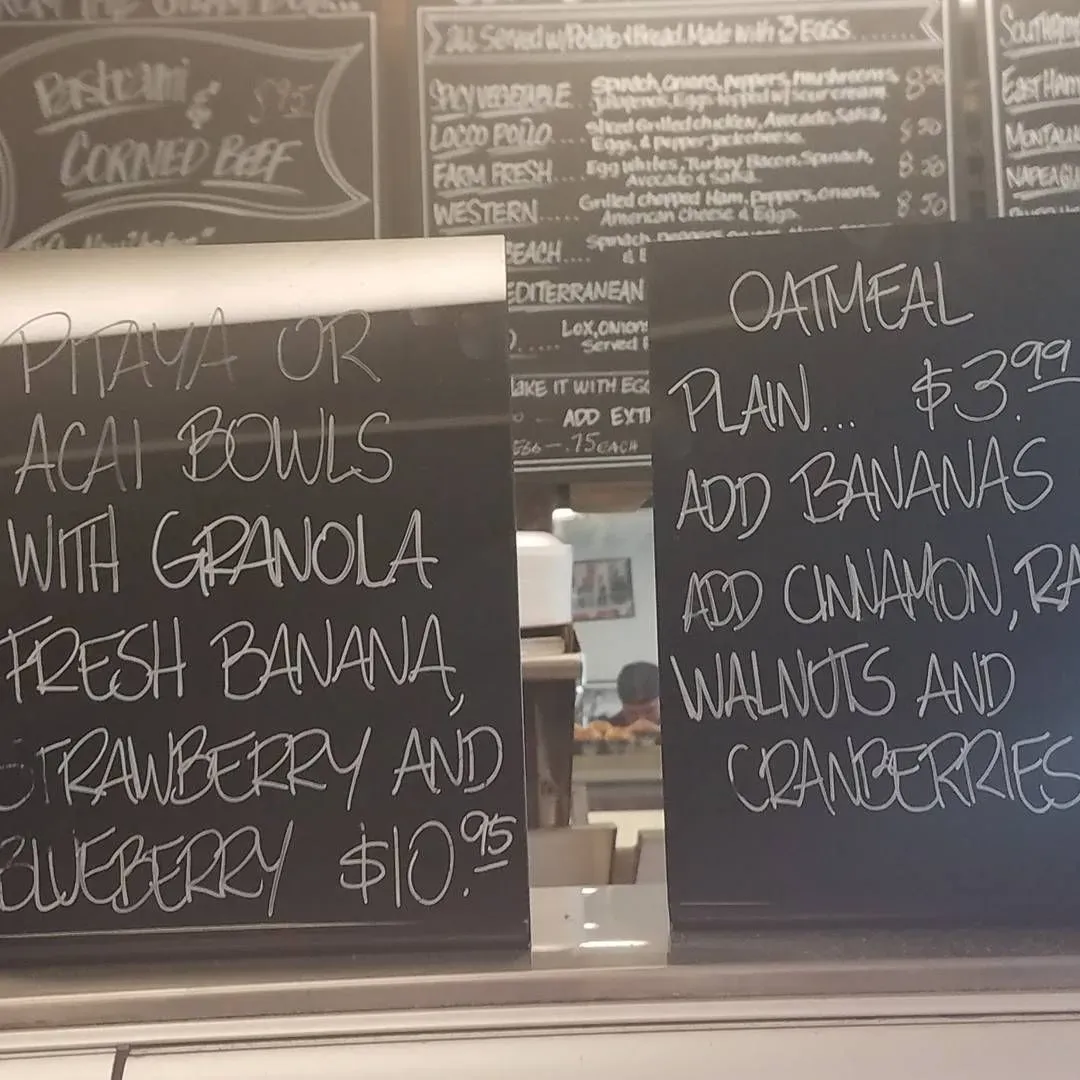 Pastrami
&
CORNED BEEF
All Served w/Potato & Bread. Made with 3 EGGS
SPICY VEGETABLE Spinach, Onions, Peppers, Mushrooms, 8.50
Jalapenos, Eggs topped w/ sour cream
LOCCO POLLO.... Sliced Grilled chicken, Avocado, Salsa, 8.50
Eggs, & Pepper jack cheese.
FARM FRESH.... Egg Whites, Turkey Bacon, Spinach, 8.50
Avocado & Salsa.
WESTERN..... Grilled chopped Ham, Peppers, Onions, 8.50
American Cheese & Eggs.
EACH.... Spinach,
EDITERRANEAN
Lox, Onions
Served
MAKE IT WITH EGG
ADD EXT
EGG - .75 EACH
EAST HAM
MONTAU
NAPEAGU
PITAYA OR
ACAI BOWLS
WITH GRANOLA
FRESH BANANA,
STRAWBERRY AND
BLUEBERRY $10.95
OATMEAL
PLAIN... $3.99
ADD BANANAS
ADD CINNAMON, RA
WALNUTS AND
CRANBERRIES